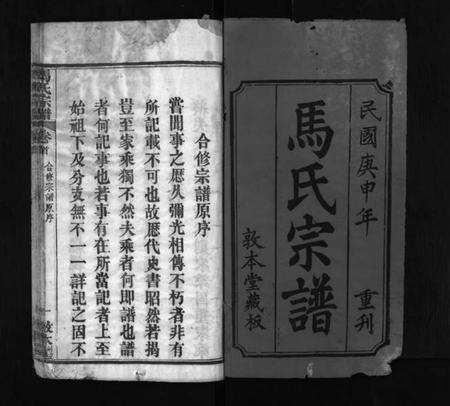 民國庚申年
重刊
馬氏宗譜
敦本堂藏板
合修宗譜原序
嘗聞事之歷久彌光相傳不朽者非有
所記載不可也故歷代史書昭然若揭
豈至家乘獨不然夫乘者何即譜也譜
者何記事也若事有在所當記者上至
始祖下及分支無不一一詳記之因不
馬氏宗譜
卷首
合修宗譜原序
一
敦本